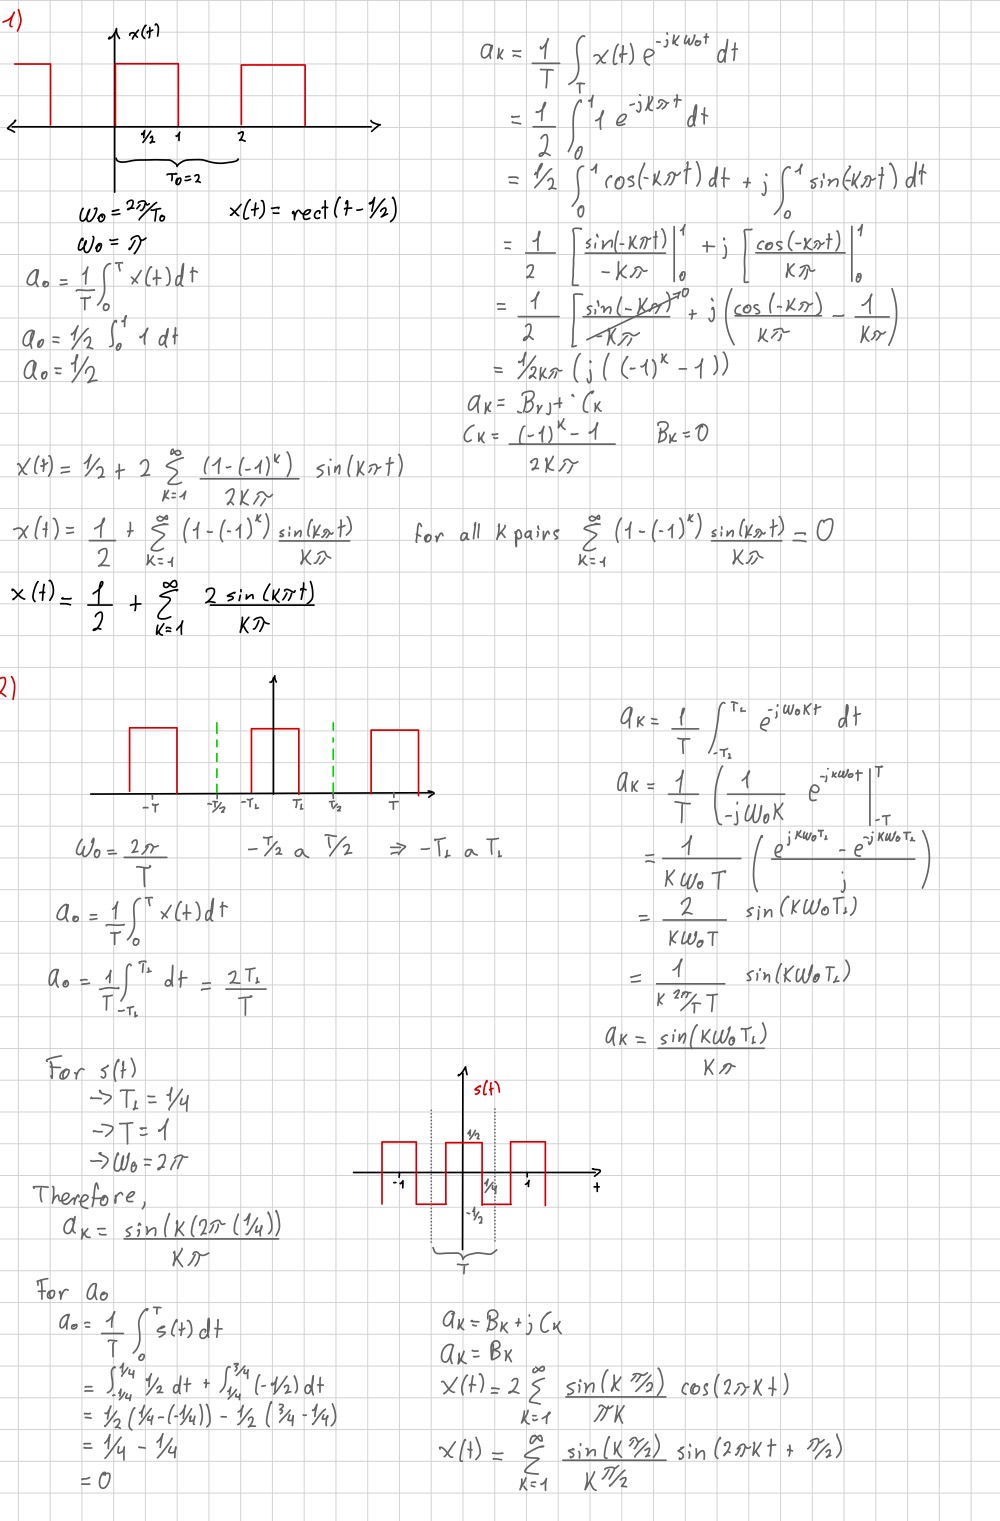 1)
x(t)
1/2 1 2
T₀=2
ω₀ = 2π/T₀ x(t) = rect(t - 1/2)
ω₀ = π
a₀ = 1/T ∫₀ᵀ x(t) dt
a₀ = 1/2 ∫₀¹ 1 dt
a₀ = 1/2
aₖ = 1/T ∫_T x(t) e^(-jkω₀t) dt
= 1/2 ∫₀¹ 1 e^(-jkπt) dt
= 1/2 ∫₀¹ cos(-kπt) dt + j ∫₀¹ sin(-kπt) dt
= 1/2 [ sin(-kπt)/-kπ |₀¹ + j [ cos(-kπt)/kπ |₀¹
= 1/2 [ sin(-kπ)/-kπ →0 + j ( cos(-kπ)/kπ - 1/kπ )
= 1/2kπ (j((-1)^k - 1))
aₖ = Bₖ + j Cₖ
Cₖ = ((-1)^k - 1)/2kπ Bₖ = 0
x(t) = 1/2 + 2 Σ_{k=1}^∞ (1-(-1)^k)/2kπ sin(kπt)
x(t) = 1/2 + Σ_{k=1}^∞ (1-(-1)^k) sin(kπt)/kπ for all k pairs Σ_{k=1}^∞ (1-(-1)^k) sin(kπt)/kπ = 0
x(t) = 1/2 + Σ_{k=1}^∞ 2 sin(kπt)/kπ
2)
-T -T/2 -T₁ T₁ T/2 T
ω₀ = 2π/T -T/2 a T/2 ⇒ -T₁ a T₁
a₀ = 1/T ∫₀ᵀ x(t) dt
a₀ = 1/T ∫_{-T₁}^{T₁} dt = 2T₁/T
aₖ = 1/T ∫_{-T₁}^{T₁} e^(-jω₀kt) dt
aₖ = 1/T ( 1/(-jω₀k) e^(-jkω₀t) |_{-T}^{T}
= 1/(kω₀T) ( (e^(jkω₀T₁) - e^(-jkω₀T₁))/j )
= 2/(kω₀T) sin(kω₀T₁)
= 1/(k 2π/T T) sin(kω₀T₁)
aₖ = sin(kω₀T₁)/kπ
For s(t)
→ T₁ = 1/4
→ T = 1
→ ω₀ = 2π
Therefore,
aₖ = sin(k(2π(1/4))/kπ
s(t)
1/2
-1 1/4 1 t
-1/2
T
For a₀
a₀ = 1/T ∫₀ᵀ s(t) dt
= ∫_{-1/4}^{1/4} 1/2 dt + ∫_{1/4}^{3/4} (-1/2) dt
= 1/2 (1/4-(-1/4)) - 1/2 (3/4 - 1/4)
= 1/4 - 1/4
= 0
aₖ = Bₖ + j Cₖ
aₖ = Bₖ
x(t) = 2 Σ_{k=1}^∞ sin(k π/2)/πk cos(2πkt)
x(t) = Σ_{k=1}^∞ sin(k π/2)/(k π/2) sin(2πkt + π/2)